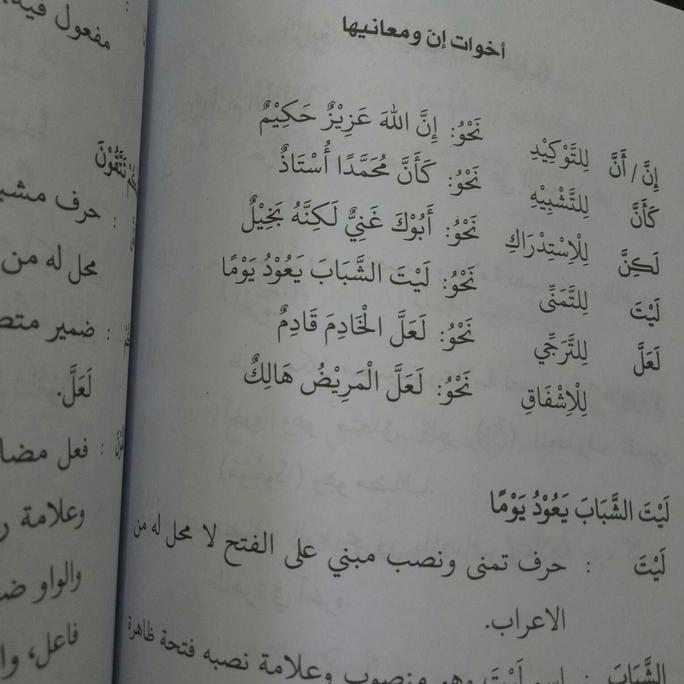 أخوات إن ومعانيها
إِنَّ / أَنَّ لِلتَّوْكِيْدِ نَحْوُ: إِنَّ اللهَ عَزِيْزٌ حَكِيْمٌ
كَأَنَّ لِلتَّشْبِيْهِ نَحْوُ: كَأَنَّ مُحَمَّدًا أُسْتَاذٌ
لَكِنَّ لِلْاِسْتِدْرَاكِ نَحْوُ: أَبُوْكَ غَنِيٌّ لَكِنَّهُ بَخِيْلٌ
لَيْتَ لِلتَّمَنِّى نَحْوُ: لَيْتَ الشَّبَابَ يَعُوْدُ يَوْمًا
لَعَلَّ لِلتَّرَجِّي نَحْوُ: لَعَلَّ الْخَادِمَ قَادِمٌ
لِلْاِشْفَاقِ نَحْوُ: لَعَلَّ الْمَرِيْضُ هَالِكٌ
لَيْتَ الشَّبَابَ يَعُوْدُ يَوْمًا
لَيْتَ : حرف تمنى ونصب مبني على الفتح لا محل له من
الاعراب.
الشَّبَابَ : اسم لَيْتَ وهو منصوب وعلامة نصبه فتحة ظاهرة
مفعول فيه.
تَتَّقُوْنَ
: حرف مشب
محل له من
: ضمير متص
لَعَلَّ.
: فعل مضا
وعلامة ر
والواو ض
فاعل، وا